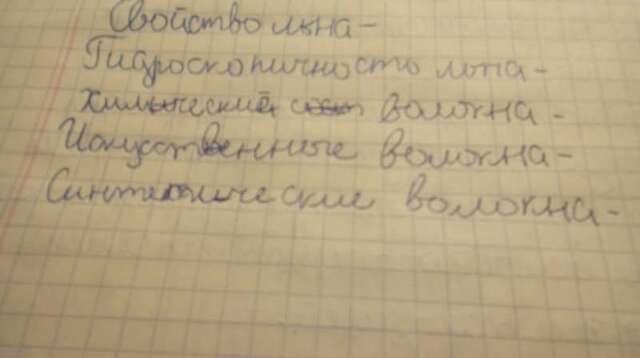 Свойство льна -
Гигроскопичность льна -
Химический волокна -
Искусственные волокна -
Синтетические волокна -